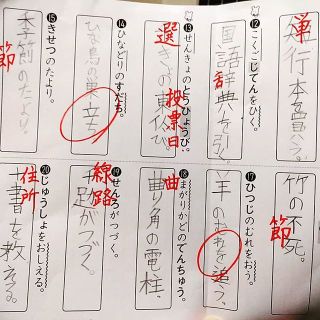 単
短行本をならべる。
⑫こくごじてんをひく。
国語辞典を引く。
辞
⑬せんきょのとうひょうび。
選
きょの東
投票日
⑭ひなどりのすだち。
ひな鳥の巣立ち
⑮きせつのたより。
季節のたより。
節
竹の不死。
節
⑰ひつじのむれをおう。
羊のむれを追う。
⑱まがりかどのでんちゅう。
曲
曲り角の電柱。
⑲せんろがつづく。
線路
路がつづく。
⑳じゅうしょをおしえる。
住所
書を教える。